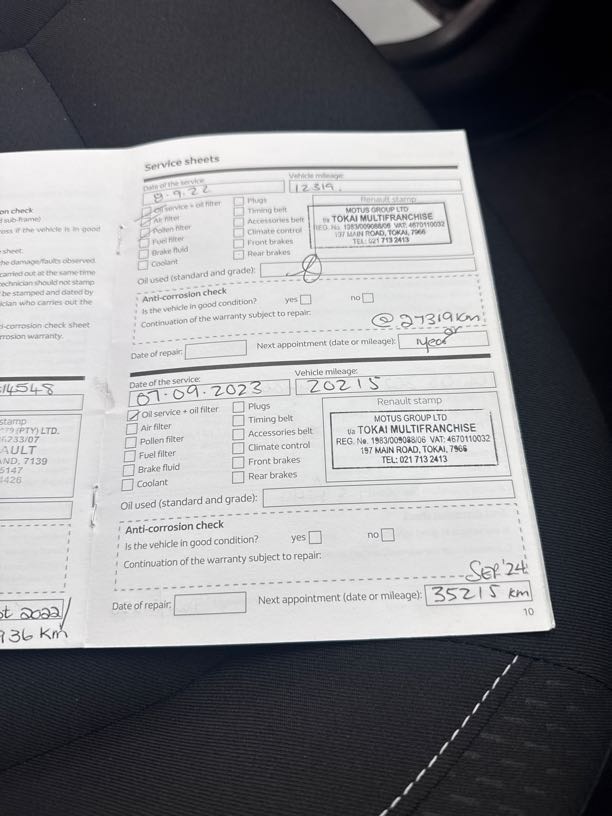 on check
d sub-frame)
oss if the vehicle is in good
sheet.
he damage/faults observed.
carried out at the same time
echnician should not stamp
be stamped and dated by
ician who carries out the
i-corrosion check sheet
rrosion warranty.
14548
stamp
(PTY) LTD.
6233/07
AULT
ND, 7139
5147
4426
2022/
936 Km
Service sheets
Date of the service:
Vehicle mileage:
8.9.22
12319.
Oil service + oil filter
Air filter
Pollen filter
Fuel filter
Brake fluid
Coolant
Plugs
Timing belt
Accessories belt
Climate control
Front brakes
Rear brakes
Renault stamp
MOTUS GROUP LTD
t/a TOKAI MULTIFRANCHISE
REG. No. 1983/009088/06 VAT: 4670110032
197 MAIN ROAD, TOKAI, 7966
TEL: 021 713 2413
Oil used (standard and grade):
Anti-corrosion check
Is the vehicle in good condition? yes no
Continuation of the warranty subject to repair:
@ 27319 km
or
Date of repair: Next appointment (date or mileage): year
Date of the service:
Vehicle mileage:
07.09.2023
20215
Oil service + oil filter
Air filter
Pollen filter
Fuel filter
Brake fluid
Coolant
Plugs
Timing belt
Accessories belt
Climate control
Front brakes
Rear brakes
Renault stamp
MOTUS GROUP LTD
t/a TOKAI MULTIFRANCHISE
REG. No. 1983/009088/06 VAT: 4670110032
197 MAIN ROAD, TOKAI, 7966
TEL: 021 713 2413
Oil used (standard and grade):
Anti-corrosion check
Is the vehicle in good condition? yes no
Continuation of the warranty subject to repair:
SEP '24
Date of repair: Next appointment (date or mileage): 35215 km
10